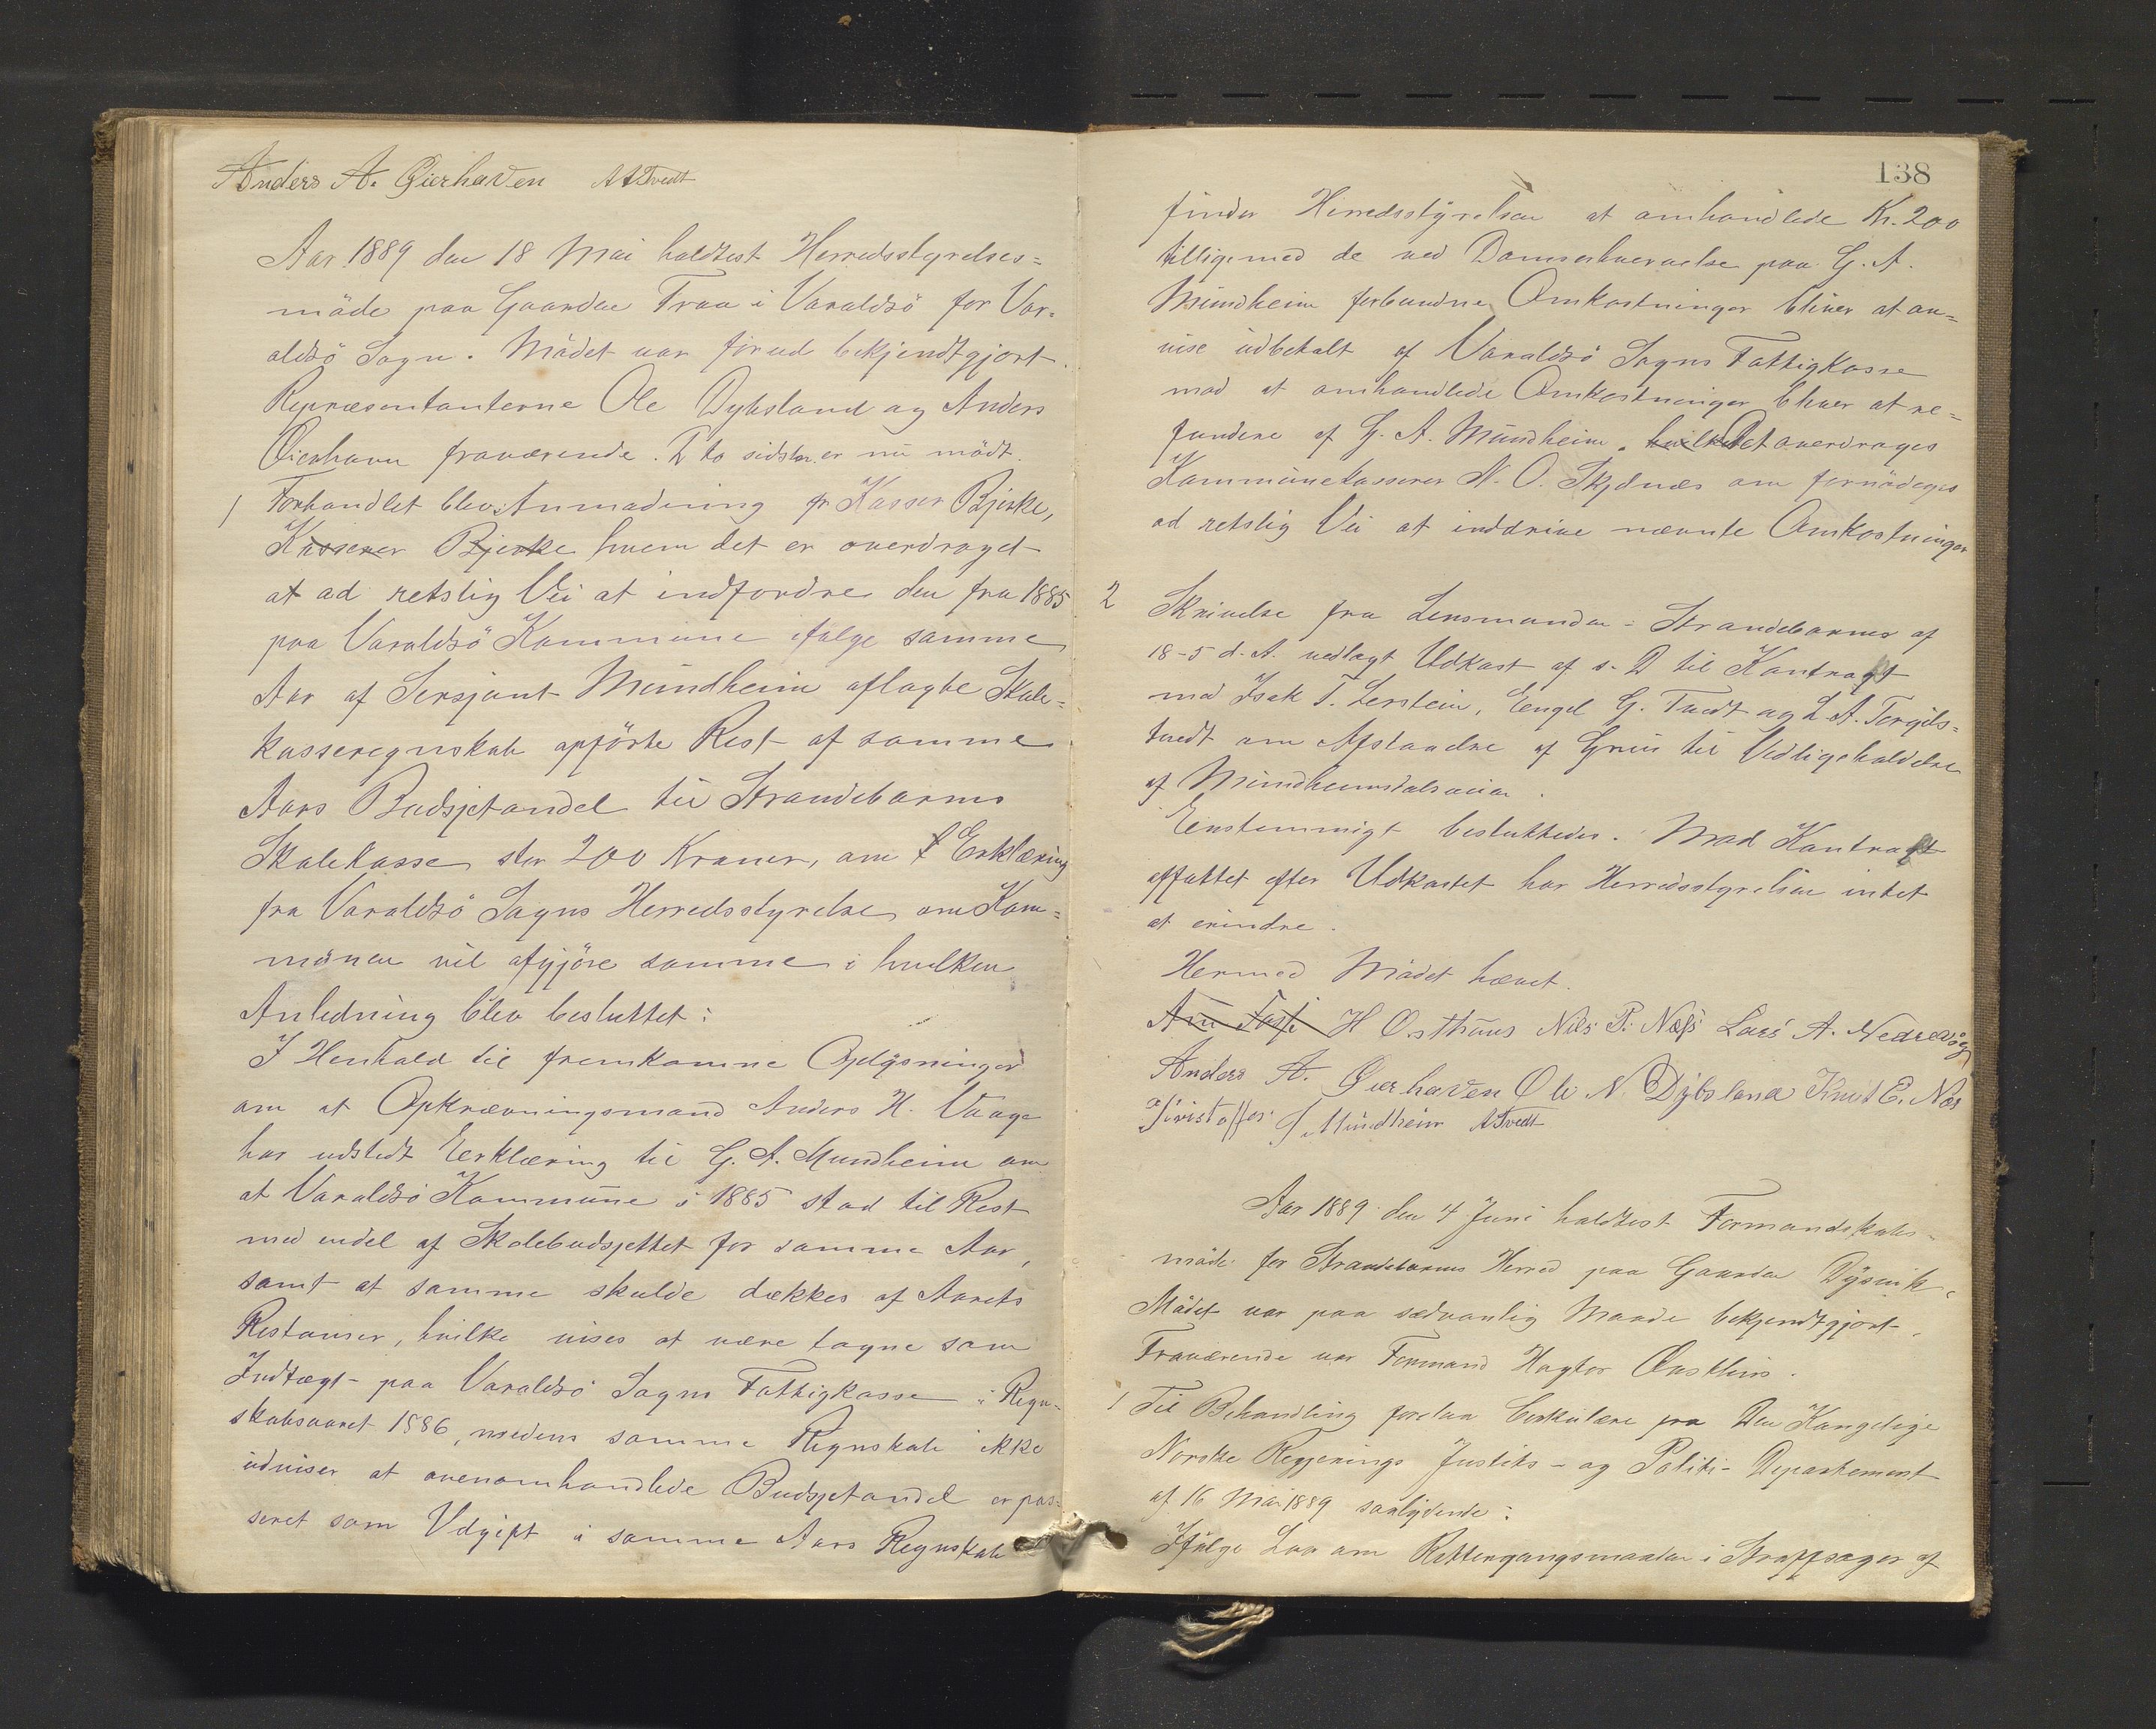 Anders A. Øierhaven A A Tvedt
Aar 1889 den 18 Mai holdtest Herredsstyrelses=
möde paa Gaarden Traa i Varaldsö for Var=
aldsö Sogn. Mödet var forud bekjendtgjort.
Repræsentanterne Ole Dybsland og Anders
Øierhavn fraværende. D to sidstn. er nu mödt.
1 Forhandlet blev: Anmodning fr Kasser Bjerke,
Kasserer Bjerke hvem det er overdraget
at ad retslig Vei at indfordre den fra 1885
paa Varaldsö Kommune ifølge samme
Aar af Sersjant Mundheim aflagte Skole=
kasseregnskab opförte Rest af samme
Aars Budsjetandel til Strandebarms
Skolekasse stor 200 Kroner, om Erklæring
fra Varaldsö Sogns Herredsstyrelse om Kom=
munen vil afgjöre samme i hvilken
Anledning blev besluttet:
I Henhold til fremkomne Oplysninger
om at Opkrævningsmand Anders H. Vaage
har udstedt Erklæring til G. A. Mundheim om
at Varaldsö Kommune i 1885 stod til Rest
med endel af Skolebudsjettet for samme Aar,
samt at samme skulde dækkes af Aarets
Restanser, hvilke vises at være tagne som
Indtægt paa Varaldsö Sogns Fattigkasse i Regn=
skabsaaret 1886, medens samme Regnskab ikke
udviser at ovenomhandlede Budsjetandel er pas=
seret som Udgift i samme Aars Regnskab
138
finder Herredsstyrelsen at omhandlede Kr. 200
tilligemed de ved Domserhvervelse paa G. A.
Mundheim forbundne Omkostninger bliver at an=
vise udbetalt af Varaldsö Sogns Fattigkasse
mod at omhandlede Omkostninger bliver at re=
fundere af G. A. Mundheim. hvilket Det overdrages
Kommunekasserer N. O. Skjelnæs om fornödiges
ad retslig Vei at inddrive nævnte Omkostninger
2 Skrivelse fra Lensmanden i Strandebarms af
18-5 d. A. vedlagt Udkast af s. D til Kontrakt
med Isak T. Lerstein, Eengel G. Tvedt og L. A. Torgils=
tvedt om Afstaaelse af Grus til Vedligeholdelse
af Mundheimsdalsveien.
Eenstemmigt besluttedes: Mod Kontrakt
affattet efter Udkastet har Herredsstyrelsen intet
at erindre.
Hermed Mödet hævet.
H Østhuus Nils P. Næss Lars A. Nedrevåg
Anders A. Øierhaven Ole N. Dybsland Knut E. Næs
Kristoffer J. Mundheim A Tvedt
Aar 1889 den 4 Juni holdtest Formandskabs=
möde for Strandebarms Herred paa Gaarden Dysvik.
Mödet var paa sædvanlig Maade bekjendtgjort.
Fraværende var Formand Østhus.
1 Til Behandling forelaa Cirkulære fra Den Kongelige
Norske Regjerings Justits- og Politi-Departement
af 16 Mai 1889 saalydende:
Ifölge Lov om Rettergangsmaaden i Straffesager af